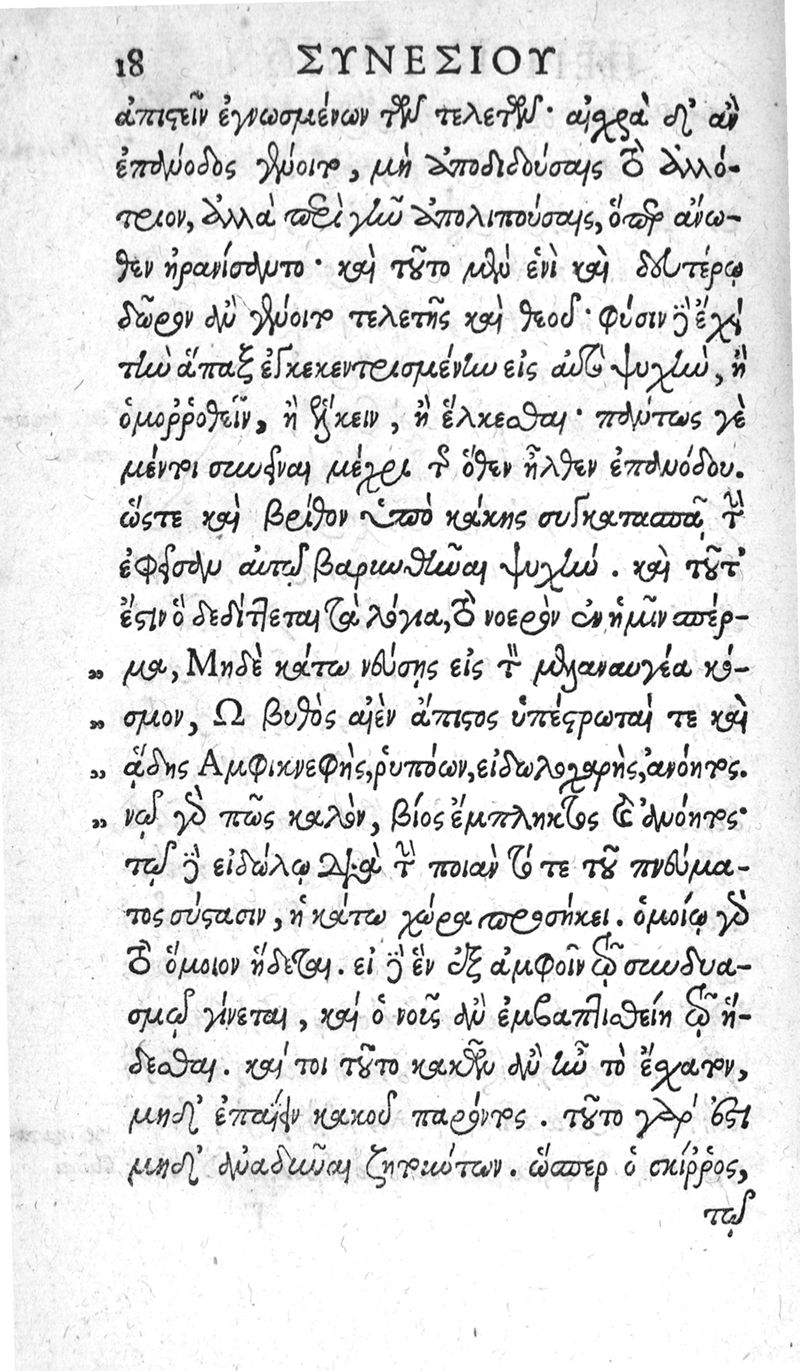 18 ΣΥΝΕΣΙΟΥ
ἀπιστεῖν ἐγνωσμένων τῶν τελετῶν· αἰσχρὰ δ' ἂν
ἐπάνοδος γένοιτο, μὴ ἀποδιδούσαις τὸ ἀλλό-
τριον, ἀλλὰ περὶ γῆν ἀπολιπούσαις, ὅπερ ἄνω-
θεν ἠρανίσαντο· καὶ τοῦτο μὲν ἑνὶ καὶ δευτέρῳ
δῶρον ἂν γένοιτο τελετῆς καὶ θεοῦ· φύσιν δὲ ἔχει
τὴν ἅπαξ ἐγκεκεντρισμένην εἰς αὐτὸ ψυχὴν, ἢ
ὁμοῤῥοθεῖν, ἢ ἕλκειν, ἢ ἕλκεσθαι· πάντως γε
μέντοι συνεῖναι μέχρι τοῦ ὅθεν ἦλθεν ἐπανόδου.
ὥστε καὶ βρῖθον ὑπὸ κάκης συγκατασπᾷ τὴν
ἐφεῖσαν αὐτῷ βαρυνθῆναι ψυχήν. καὶ τοῦτ'
ἔστιν ὃ δεδίττεται τὰ λόγια, τὸ νοερὸν ἐν ἡμῖν σπέρ-
„ μα, Μηδὲ κάτω νεύσῃς εἰς τὸν μελαναυγέα κό-
„ σμον, Ω βυθὸς αἰὲν ἄπιστος ὑπέστρωταί τε καὶ
„ ᾅδης Αμφικνεφὴς, ῥυπόων, εἰδωλοχαρὴς, ἀνόητος.
„ νῷ γὰρ πῶς καλὸν, βίος ἔμπληκτος καὶ ἀνόητος·
τῷ δὲ εἰδώλῳ διὰ τὴν ποιὰν τότε τοῦ πνεύμα-
τος σύστασιν, ἡ κάτω χώρα προσήκει. ὁμοίῳ γὰρ
τὸ ὅμοιον ἥδεται. εἰ δὲ ἓν ἐξ ἀμφοῖν τῷ συνδυα-
σμῷ γίνεται, καὶ ὁ νοῦς ἂν ἐμβαπτισθείη τῷ ἥ-
δεσθαι. καί τοι τοῦτο κακῶν ἂν ἦν τὸ ἔσχατον,
μηδ' ἐπαΐειν κακοῦ παρόντος. τοῦτο γάρ ἐστι
μηδ' ἀναδῦναι ζητούντων. ὥσπερ ὁ σκίῤῥος,
τῷ